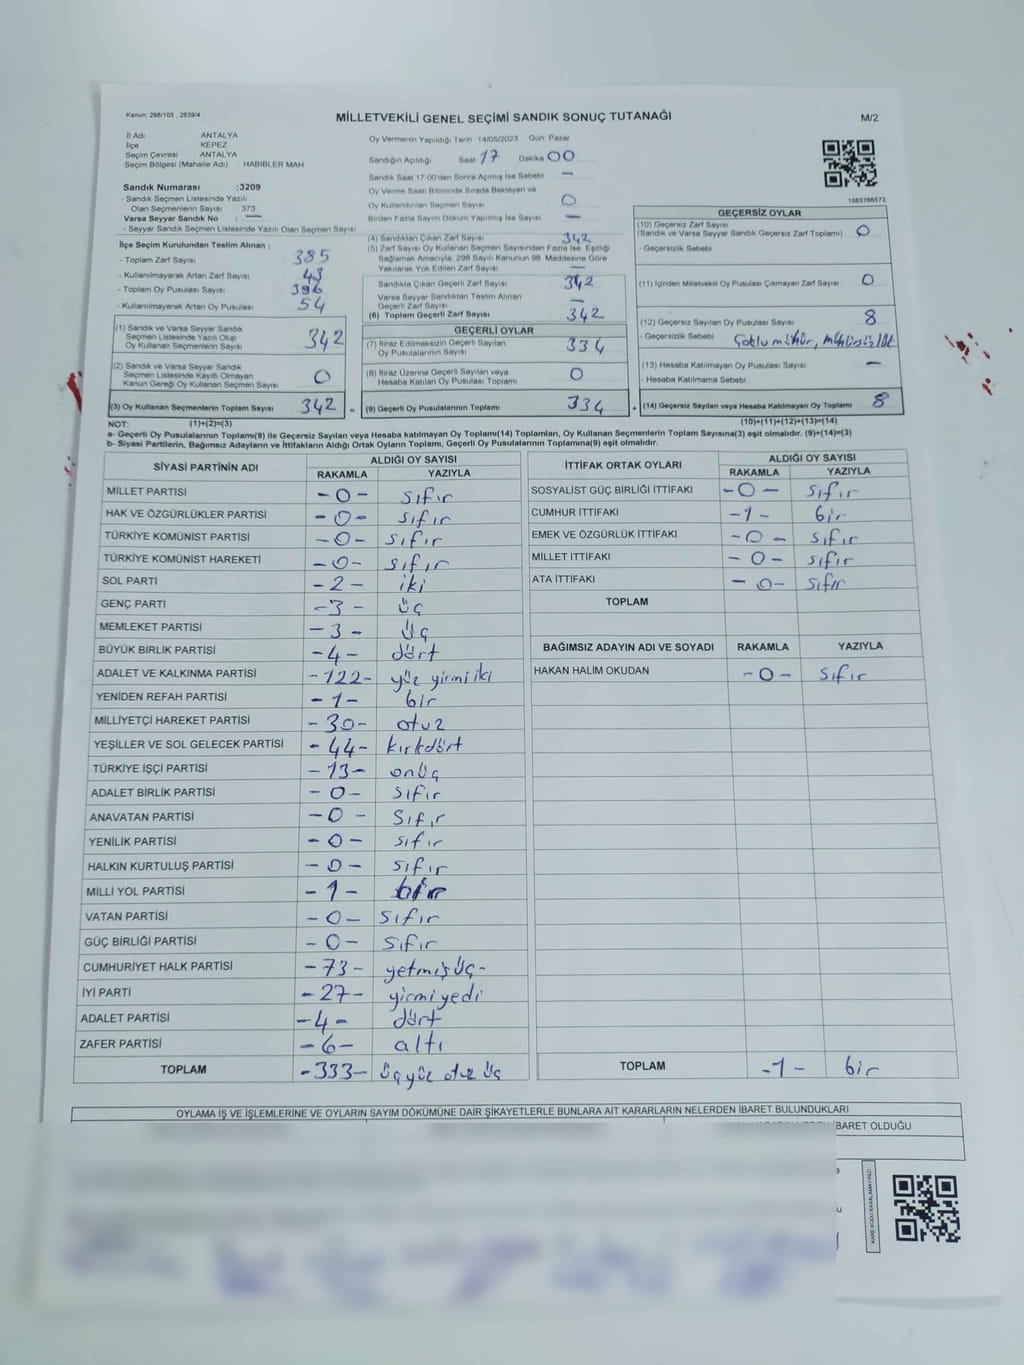 Kanun: 298/105 , 2839/4
MİLLETVEKİLİ GENEL SEÇİMİ SANDIK SONUÇ TUTANAĞI
M/2
İl Adı ANTALYA
İlçe KEPEZ
Seçim Çevresi ANTALYA
Seçim Bölgesi (Mahalle Adı) HABİBLER MAH
Oy Vermenin Yapıldığı Tarih 14/05/2023 Gün Pazar
Sandığın Açıldığı Saat 17 Dakika 00
Sandık Saat 17.00'den Sonra Açılmış İse Sebebi —
Oy Verme Saati Bitiminde Sırada Bekleyen ve
Oy Kullandırılan Seçmen Sayısı 0
Birden Fazla Sayım Döküm Yapılmış İse Sayısı —
1083766573
Sandık Numarası :3209
- Sandık Seçmen Listesinde Yazılı
Olan Seçmenlerin Sayısı : 373
Varsa Seyyar Sandık No : —
- Seyyar Sandık Seçmen Listesinde Yazılı Olan Seçmen Sayısı
İlçe Seçim Kurulundan Teslim Alınan ;
- Toplam Zarf Sayısı 385
- Kullanılmayarak Artan Zarf Sayısı 43
- Toplam Oy Pusulası Sayısı 396
- Kullanılmayarak Artan Oy Pusulası 54
(1) Sandık ve Varsa Seyyar Sandık
Seçmen Listesinde Yazılı Olup
Oy Kullanan Seçmenlerin Sayısı 342
(2) Sandık ve Varsa Seyyar Sandık
Seçmen Listesinde Kayıtlı Olmayan
Kanun Gereği Oy Kullanan Seçmen Sayısı 0
(3) Oy Kullanan Seçmenlerin Toplam Sayısı 342 =
(4) Sandıktan Çıkan Zarf Sayısı 342
(5) Zarf Sayısı Oy Kullanan Seçmen Sayısından Fazla İse, Eşitliği
Sağlamak Amacıyla, 298 Sayılı Kanunun 98. Maddesine Göre
Yakılarak Yok Edilen Zarf Sayısı —
Sandıkta Çıkan Geçerli Zarf Sayısı 342
Varsa Seyyar Sandıktan Teslim Alınan
Geçerli Zarf Sayısı —
(6) Toplam Geçerli Zarf Sayısı 342
GEÇERLİ OYLAR
(7) İtiraz Edilmeksizin Geçerli Sayılan
Oy Pusulalarının Sayısı 334
(8) İtiraz Üzerine Geçerli Sayılan veya
Hesaba Katılan Oy Pusulası Toplamı 0
(9) Geçerli Oy Pusulalarının Toplamı 334 +
GEÇERSİZ OYLAR
(10) Geçersiz Zarf Sayısı
(Sandık ve Varsa Seyyar Sandık Geçersiz Zarf Toplamı) 0
- Geçersizlik Sebebi
(11) İçinden Milletvekili Oy Pusulası Çıkmayan Zarf Sayısı 0
(12) Geçersiz Sayılan Oy Pusulası Sayısı 8
- Geçersizlik Sebebi Çoklu mühür,
(13) Hesaba Katılmayan Oy Pusulası Sayısı —
- Hesaba Katılmama Sebebi
(14) Geçersiz Sayılan veya Hesaba Katılmayan Oy Toplamı 8
NOT: (1)+(2)=(3) (10)+(11)+(12)+(13)=(14)
a- Geçerli Oy Pusulalarının Toplamı(9) ile Geçersiz Sayılan veya Hesaba katılmayan Oy Toplamı(14) Toplamları, Oy Kullanan Seçmenlerin Toplam Sayısına(3) eşit olmalıdır. (9)+(14)=(3)
b- Siyasi Partilerin, Bağımsız Adayların ve İttifakların Aldığı Ortak Oyların Toplamı, Geçerli Oy Pusulalarının Toplamına(9) eşit olmalıdır.
SİYASİ PARTİNİN ADI ALDIĞI OY SAYISI
RAKAMLA YAZIYLA
MİLLET PARTİSİ -0- sıfır
HAK VE ÖZGÜRLÜKLER PARTİSİ -0- sıfır
TÜRKİYE KOMÜNİST PARTİSİ -0- sıfır
TÜRKİYE KOMÜNİST HAREKETİ -0- sıfır
SOL PARTİ -2- iki
GENÇ PARTİ -3- üç
MEMLEKET PARTİSİ -3- üç
BÜYÜK BİRLİK PARTİSİ -4- dört
ADALET VE KALKINMA PARTİSİ -122- yüz yirmi iki
YENİDEN REFAH PARTİSİ -1- bir
MİLLİYETÇİ HAREKET PARTİSİ -30- otuz
YEŞİLLER VE SOL GELECEK PARTİSİ -44- kırkdört
TÜRKİYE İŞÇİ PARTİSİ -13- onüç
ADALET BİRLİK PARTİSİ -0- sıfır
ANAVATAN PARTİSİ -0- sıfır
YENİLİK PARTİSİ -0- sıfır
HALKIN KURTULUŞ PARTİSİ -0- sıfır
MİLLİ YOL PARTİSİ -1- bir
VATAN PARTİSİ -0- sıfır
GÜÇ BİRLİĞİ PARTİSİ -0- sıfır
CUMHURİYET HALK PARTİSİ -73- yetmiş üç-
İYİ PARTİ -27- yirmi yedi
ADALET PARTİSİ -4- dört
ZAFER PARTİSİ -6- altı
TOPLAM -333- üç yüz otuz üç
İTTİFAK ORTAK OYLARI ALDIĞI OY SAYISI
RAKAMLA YAZIYLA
SOSYALİST GÜÇ BİRLİĞİ İTTİFAKI -0- sıfır
CUMHUR İTTİFAKI -1- bir
EMEK VE ÖZGÜRLÜK İTTİFAKI -0- sıfır
MİLLET İTTİFAKI -0- sıfır
ATA İTTİFAKI -0- sıfır
TOPLAM
BAĞIMSIZ ADAYIN ADI VE SOYADI RAKAMLA YAZIYLA
HAKAN HALİM OKUDAN -0- sıfır
TOPLAM -1- bir
OYLAMA İŞ VE İŞLEMLERİNE VE OYLARIN SAYIM DÖKÜMÜNE DAİR ŞİKAYETLERLE BUNLARA AİT KARARLARIN NELERDEN İBARET BULUNDUKLARI
BARET OLDUĞU
KARE KODU KARALAMAYINIZ!